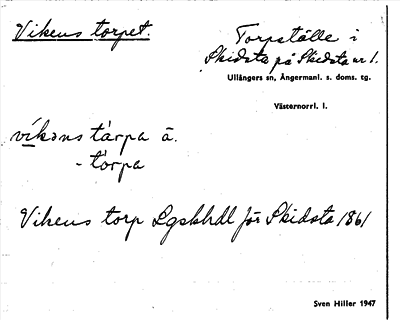 Vikens torpet.
Torpställe i
Skidsta på Skidsta nr 1.
Ullångers sn, Ångermanl. s. doms. tg.
Västernorrl. l.
víkəns tàrpa ä.
- tòrpa
Vikens torp Lgskhdl för Skidsta 1861
Sven Hiller 1947